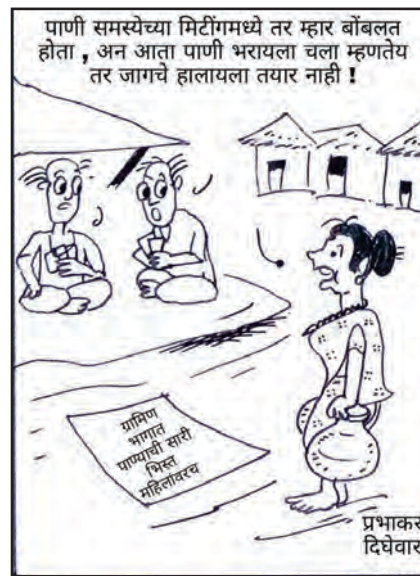 पाणी समस्येच्या मिटींगमध्ये तर म्हार बोंबलत
होता , अन आता पाणी भरायला चला म्हणतेय
तर जागचे हालायला तयार नाही !
ग्रामिण
भागात
पाण्याची सारी
भिस्त
महिलांवरच
प्रभाकर
दिघेवार